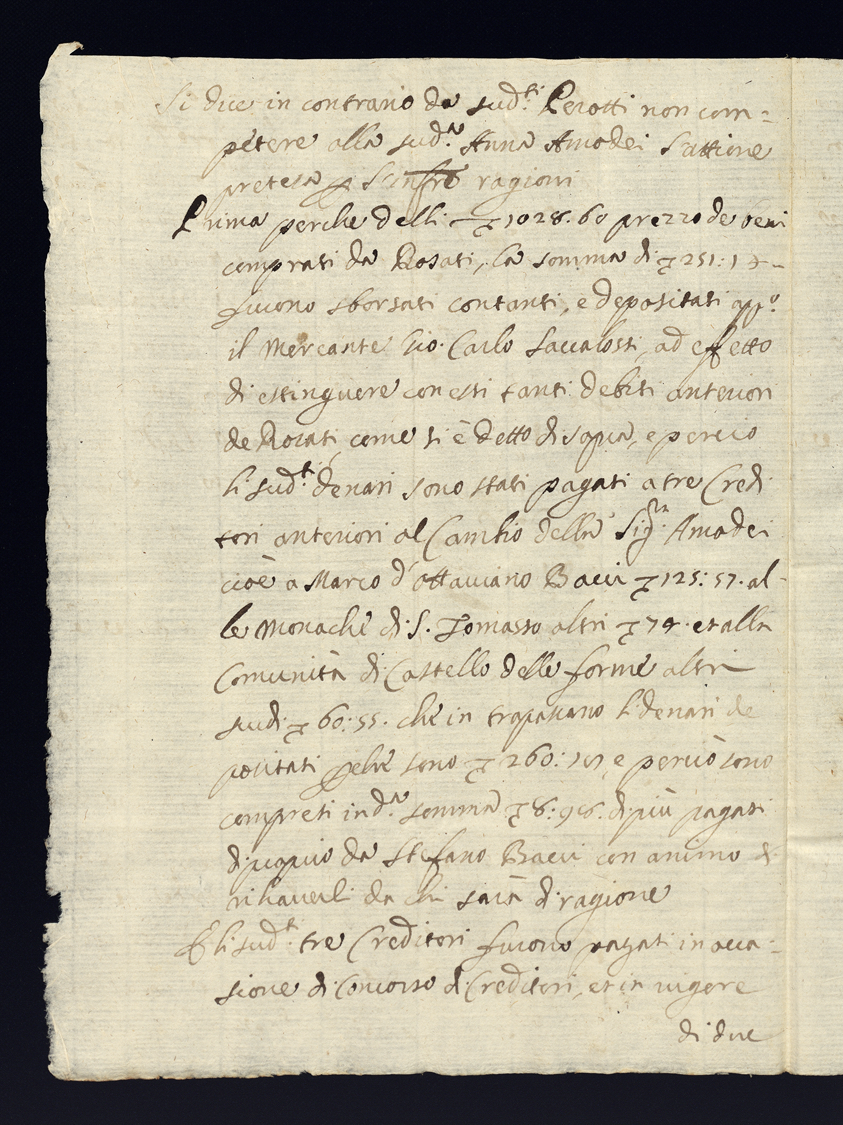 Si dice in contrario da sud.ti Perotti non com=
petere alla sud.a Anna Amodei l'attione
pretesa p l'infre ragioni
Prima perche delli 1028.60 prezzo de beni
comprati da Rosati, la somma di 251:1
furono sborsati contanti, e depositati app.o
il Mercante Gio. Carlo Saccalossi, ad effetto
di estinguere con essi tanti debiti anteriori
de Rosati, come si è detto di sopra, e percio
li sud.ti denari sono stati pagati a tre Credi
tori anteriori al Cambio della Sig.ra Amadei
cioè a Marco d'Ottaviano Bacci 125:57. al-
le Monache di S. Tomasso altri 74. et alla
Comunità di Castello delle forme altri
scudi 60:55. che in tra passano li denari de
positati sono 260: e perciò sono
compresi in d.a somma 8:98. di più pagati
di proprio da Stefano Bacci con animo di
rihaverli da chi sarà di ragione
E li sud.ti tre Creditori furono pagati in occa=
sione di Concorso di Creditori, et in vigore
di due